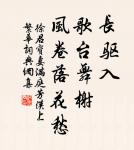 長驅入
歌台舞榭
風卷落花愁
徐君寶妻滿庭芳漢上
繁華詞典網喜